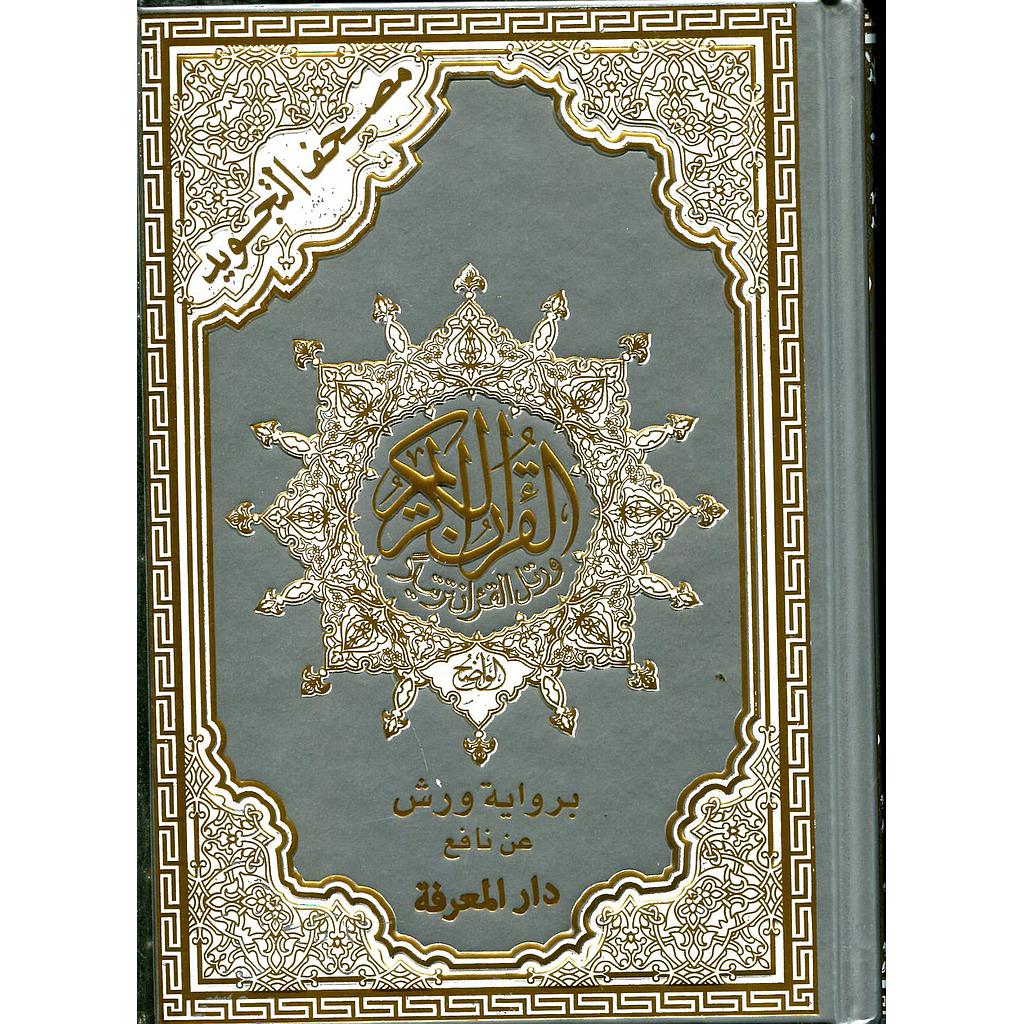 مصحف التجويد
القرآن الكريم
ورتل القرءان ترتيلا
الواضح
برواية ورش
عن نافع
دار المعرفة